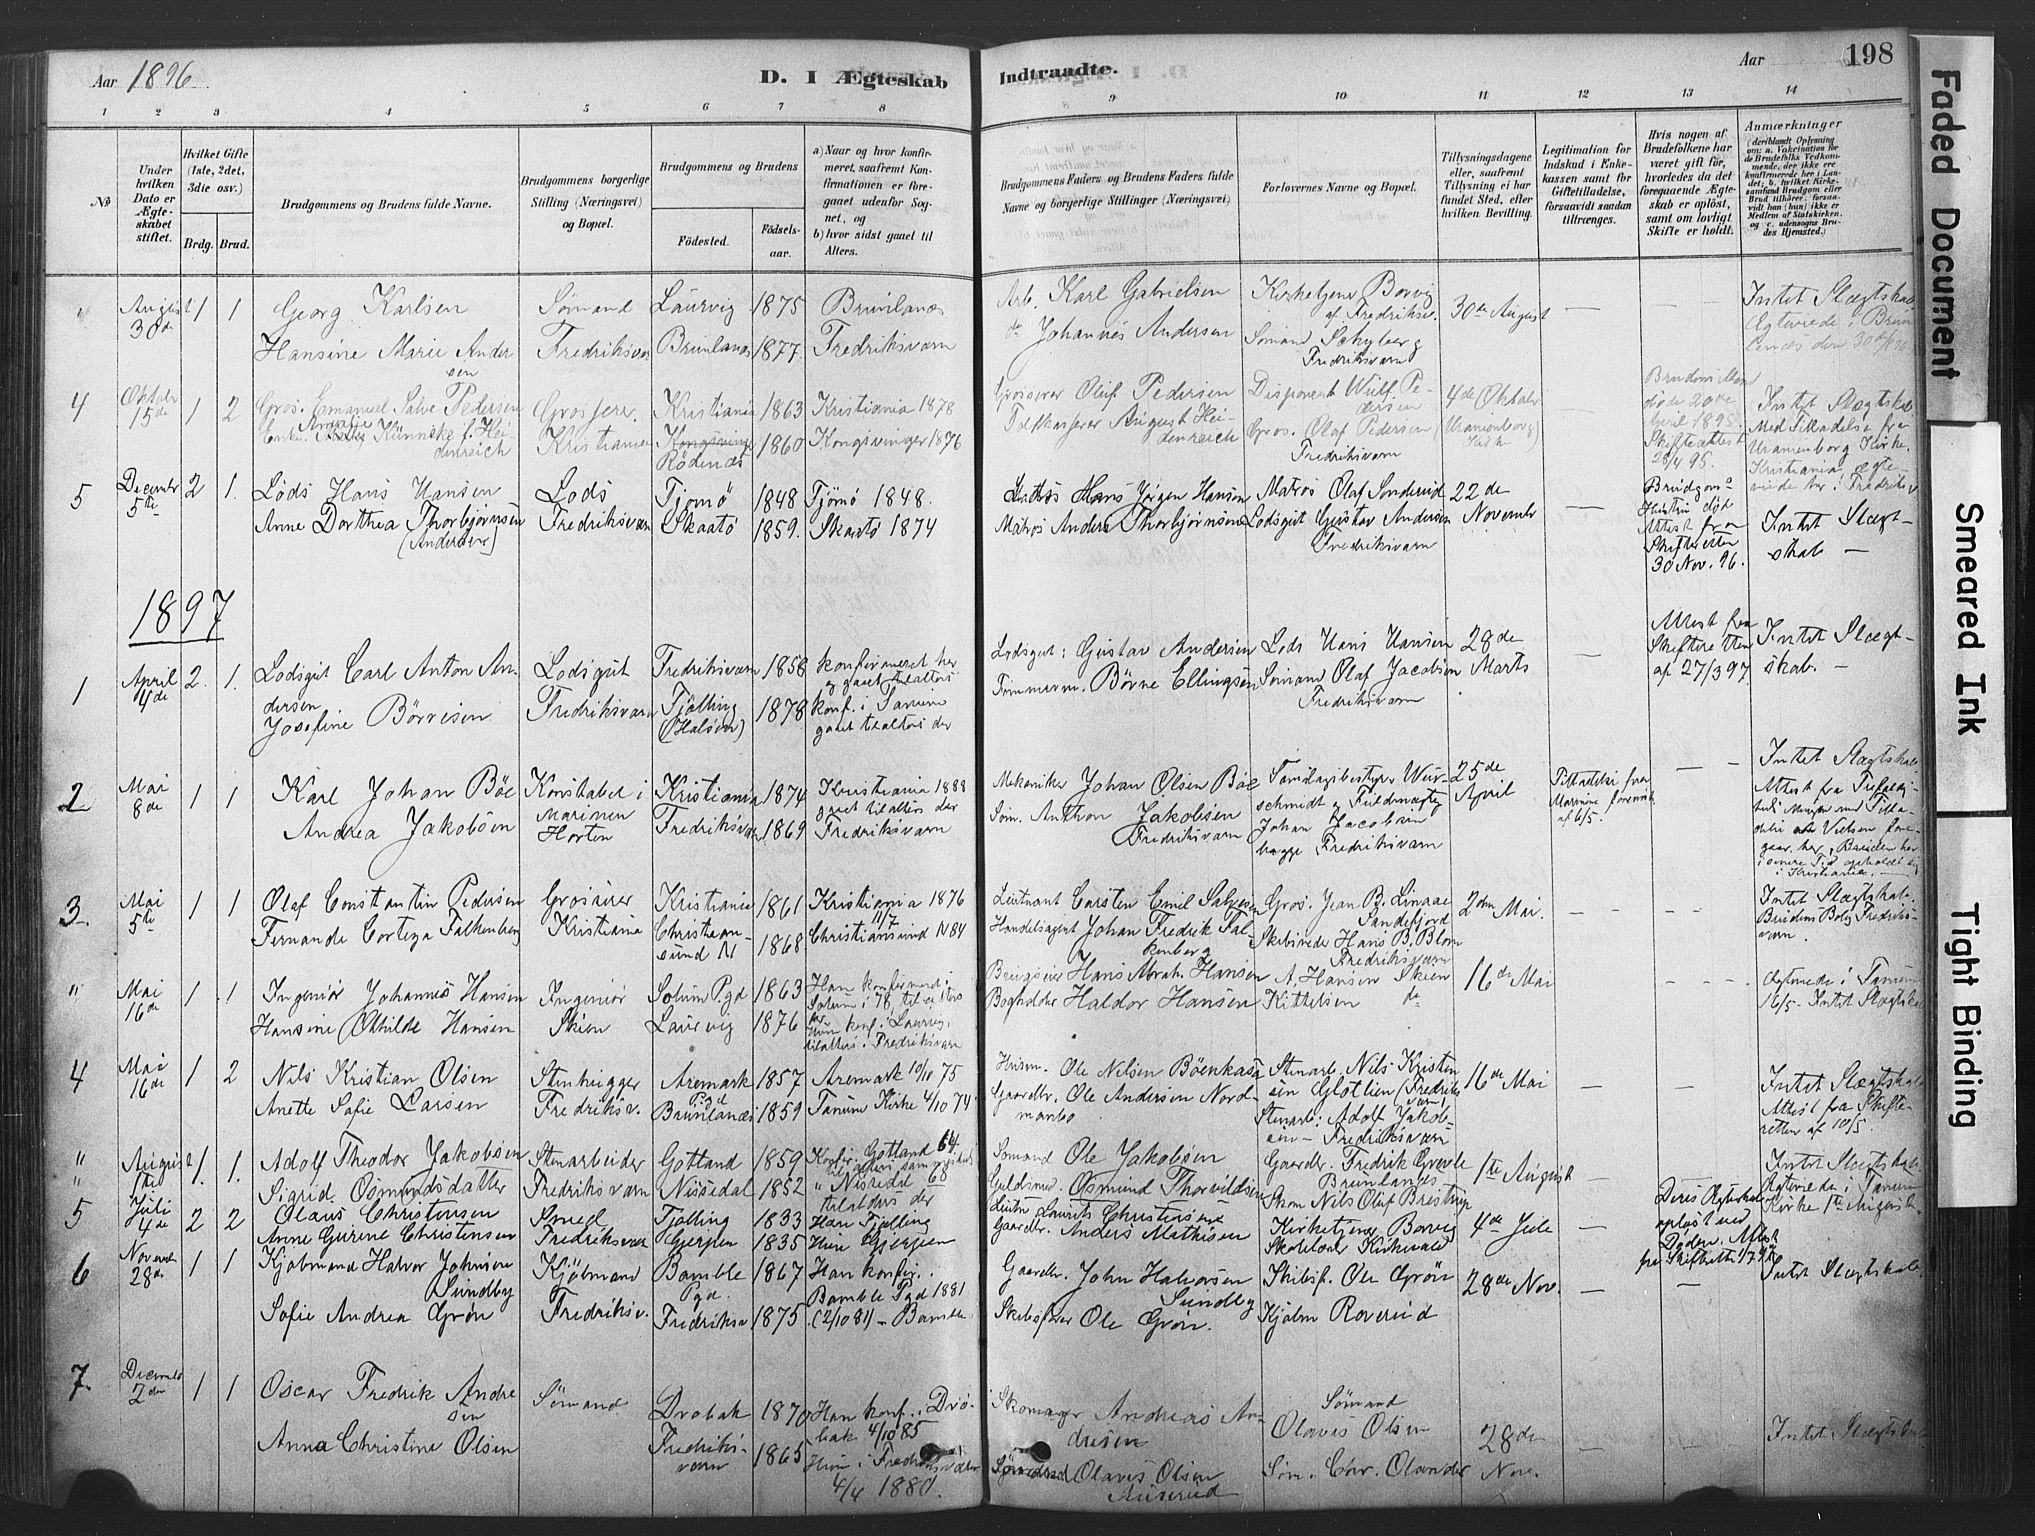 Aar 1896
D. I Ægteskab
Indtraadte.
Aar
198
1 2 3 4 5 6 7 8
9 10 11 12 13 14
No
Under hvilken Dato er Ægteskabet stiftet.
Hvilket Gifte (1ste, 2det, 3die osv.)
Brdg. Brud.
Brudgommens og Brudens fulde Navne.
Brudgommens borgerlige Stilling (Næringsvei) og Bopæl.
Brudgommens og Brudens
Födested.
Födselsaar.
a) Naar og hvor konfirmeret, saafremt Konfirmationen er foregaaet udenfor Sognet, og
b) hvor sidst gaaet til Alters.
Brudgommens Faders og Brudens Faders fulde Navne og borgerlige Stillinger (Næringsvei)
Forlovernes Navne og Bopæl.
Tillysningsdagene eller, saafremt Tillysning ei har fundet Sted, efter hvilken Bevilling.
Legitimation for Indskud i Enkekassen samt for Giftetilladelse, forsaavidt saadan tiltrænges.
Hvis nogen af Brudefolkene har været gift för, hvorledes da det foregaaende Ægteskab er oplöst, samt om lovligt Skifte er holdt.
Anmærkninger
(deriblandt Oplysning om: a. Vakcination for de Brudefolks Vedkommende, der ikke ere konfirmerede her i Landet; b. hvilket Kirkesamfund Brudgom eller Brud tilhörer, forsaavidt han (hun) ikke er Medlem af Statskirken, og c. udensogns Brudes Hjemsted.)
" August 30de 1 1 Georg Karlsen Sømand Laurvig 1875 Brunlanæs
Arb. Karl Gabrielsen Kirketjener Borvig af Fredriksv. 30de August — Intet Slægtskab
Hansine Marie Andersen Fredriksværn Brunlanæs 1877 Fredriksværn
do Johannes Andersen Sømand Schyberg Fredriksværn
Ægteviede i Brunlanæs den 30de
4 Oktober 15de 1 2 Gros. Emanuel Salve Pedersen Grosserer Kristiania 1863 Kristiania 1878
Grosserer Oluf Pedersen Disponent Wulf Pedersen 4de Oktober
Enke Amalie Künneke f. Heidenreich Kristiania Rødenæs 1860 Kongsvinger 1876
Toldkasserer August Heidenreich Gros. Olaf Pedersen Fredriksværn (Uranienborg Kirke)
Brudens Mand døde 20de April 1895. Skifteattest 28/4 95.
Intet Slægtskab Med Tilladelse fra Uranienborg Kirke, Kristiania,
5 December 5te 2 1. Lods Hans Hansen Lods Tjømø 1848 Tjømø 1848.
Hans Jørgen Hansen Matros Olaf Sonderud 22de November
Anne Dorthea Thorbjørnsen (Andersen) Fredriksværn Skaatø 1859. Skaatø 1874
Matros Anders Thorbjørnsen Lodsgut Gustav Andersen Fredriksværn
Brudgoms Hustru død Attest fra Skifteretten 30 Nov. 96.
Intet Slægtskab —
1897
1 April 4de 2. 1. Lodsgut Carl Anton Andersen Lodsgut Fredriksværn 1858 konfirmeret her og gaaet til alters
Lodsgut: Gustav Andersen Lods Hans Hansen 28de Marts
Josefine Børresen Fredriksværn Tjølling (Halsen) 1878 konf. i Tanum gaaet til alters der
Tømmerm. Børre Ellingsen Sømand Olaf Jacobsen Fredriksværn
Attest fra Skifteretten af 27/3 97 Intet Slægtskab. —
2 Mai 8de 1 1 Karl Johan Böe Konstabel i Marinen Horten Kristiania 1874 Kristiania 1888 gaaet til alters der
Mekaniker Johan Olsen Böe 25de April
Andrea Jakobsen Fredriksværn 1869 Fredriksværn
Søm. Anthon Jakobsen Fredriksværn Johan Jacobsen begge Fredriksværn
Tilladelse fra Marine af 6/5.
Intet Slægtskab
3 Mai 5te 1 1 Olaf Constantin Pedersen Grosserer Kristiania 1861 Kristiania 1876
Leutnant Carsten Emil Salvesen Gros. Jean B. Linaae Sandefjord 2den Mai.
Fernanda Corteza Falkenberg Kristiania Christiansund N 1868 11/7 Christiansund N 84
Handelsagent Johan Fredrik Falkenberg Skibsreder Hans B. Blom Fredriksværn
Intet Slægtskab. Brudens Bolig Fredriksværn.
" Mai 16de 1 1 Ingeniør Johannes Hansen Ingeniør Solum Pgd 1863 Han konfirmeret i Solum i 78, til alters
Brugseier Hans Abrah. Hansen A. Hansen Skien 16de Mai
Hansine Othilde Hansen Skien Laurvig 1876 Hun konf. i Laurvig, tilalters i Fredriksværn
Bogholder Haldor Hansen Kittelsen do
Ægteviede i Tanum 16/5 - Intet Slægtskab
4 Mai 16de 1 2 Nils Kristian Olsen Stenhugger Aremark Pgd 1857 Aremark 10/10 75
Husm. Ole Nilsen Stenarb. Nils Kristensen (Fredriksværn) 16de Mai
Anette Sofie Larsen Fredriksv. Brunlanæs 1859 Tanum Kirke 4/10 74
Gaardbr. Ole Andersen Nordmanbo Stenarb: Adolf Jakobsen — Fredriksværn
Intet Slægtskab Attest fra Skifteretten af 10/5.
" August 1ste 1. 1. Adolf Theodor Jakobsen Stenarbeider Gotland 1859 Konfir. Gotland
Sømand Ole Jakobsen Gaardbr. Fredrik Grevle Brunlanæs 1ste August
" Sigrid Osmundsdatter Fredriksværn Nissedal 1852 " Nissedal 68 tilalters der
Guldsmed. Osmund Thorvildsen Skom Nils Oluf Bristrup
Intet Slægtskab. Ægteviede i Tanum Kirke 1ste August.
5 Juli 4de 2 2 Olaus Christensen Smed Tjølling 1833 Han Tjølling
Laurits Christensen Kirketjener Borvig 4de Jule
Anne Gurine Christensen Fredriksværn Gjerpen 1835 Hun Gjerpen
Gaardbr. Anders Mathisen
Deres Ægteskab opløst ved Døden. Attest fra Skifteretten
6 November 28de 1 1 Kjøbmand Halvor Johnsen Sundby Kjøbmand Bamble Pgd. 1867 Han konfir. Bamble Pgd 1881
Gaardbr. John Halvorsen Sundby Skibsf. Ole Grøn 28de Nov.
Sofie Andrea Grøn Fredriksv. Fredriksv 1875 (2/10 81) — Bamble
Skibsfører Ole Grøn. Kjøbm Roverud
Intet Slægtskab
7. December 2den 1 1 Oscar Fredrik Andresen Sømand Drøbak 1870 Han konf. i Drøbak 4/10 85
Skomager Andreas Andresen Sømand Olavis Olsen 28de Nov.
Anna Christine Olsen Fredriksværn 1865 Hun i Fredriksværn 4/4 1880.
Olavis Olsen Auserud Søm. Chr. Olander
Intet Slægtskab
Faded Document
Smeared Ink
Tight Binding